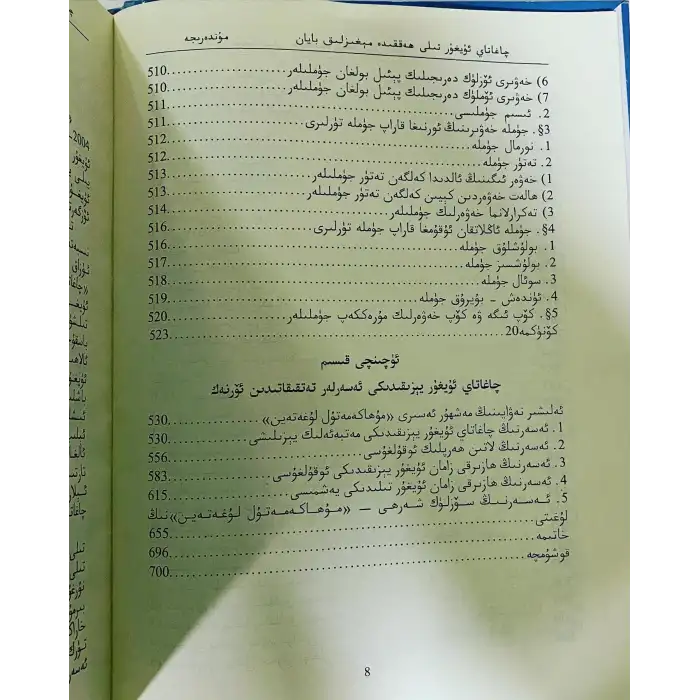 چاغاتاي ئۇيغۇر تىلى ھەققىدە مېغىزلىق بايان مۇندەرىجە
6) خەۋىرى ئۆزلۈك دەرىجىلىك پېئىل بولغان جۈملىلەر..................510
7) خەۋىرى ئۆملۈك دەرىجىلىك پېئىل بولغان جۈملىلەر..................510
2. ئىسىم جۈملىسى..................511
§3. جۈملە خەۋىرىنىڭ ئورنىغا قاراپ جۈملە تۈرلىرى..................511
1. نورمال جۈملە..................512
2. تەتۈر جۈملە..................512
1) خەۋەر ئىگىنىڭ ئالدىدا كەلگەن تەتۈر جۈملىلەر..................513
2) ھالەت خەۋەردىن كېيىن كەلگەن تەتۈر جۈملىلەر..................513
3) تەكرارلانما خەۋەرلىك جۈملىلەر..................514
§4. جۈملە ئاڭلاتقان ئۇقۇمغا قاراپ جۈملە تۈرلىرى..................516
1. بولۇشلۇق جۈملە..................516
2. بولۇشسىز جۈملە..................517
3. سوئال جۈملە..................518
4. ئۈندەش - بۇيرۇق جۈملە..................519
§5. كۆپ ئىگە ۋە كۆپ خەۋەرلىك مۇرەككەپ جۈملىلەر..................520
كۆنۈكمە20..................523
ئۈچىنچى قىسىم
چاغاتاي ئۇيغۇر يېزىقىدىكى ئەسەرلەر تەتقىقاتىدىن ئۆرنەك
ئەلىشىر نەۋايىنىڭ مەشھۇر ئەسىرى «مۇھاكەمەتۇل لۇغەتەين»..................530
1. ئەسەرنىڭ چاغاتاي ئۇيغۇر يېزىقىدىكى مەتبەئەلىك يېزىلىشى..................530
2. ئەسەرنىڭ لاتىن ھەرپلىك ئوقۇلغۇسى..................556
3. ئەسەرنىڭ ھازىرقى زامان ئۇيغۇر يېزىقىدىكى ئوقۇلغۇسى..................583
4. ئەسەرنىڭ ھازىرقى زامان ئۇيغۇر تىلىدىكى يەشمىسى..................615
5. ئەسەرنىڭ سۆزلۈك شەرھى — «مۇھاكەمەتۇل لۇغەتەين»نىڭ
لۇغىتى..................655
خاتىمە..................696
قوشۇمچە..................700
8